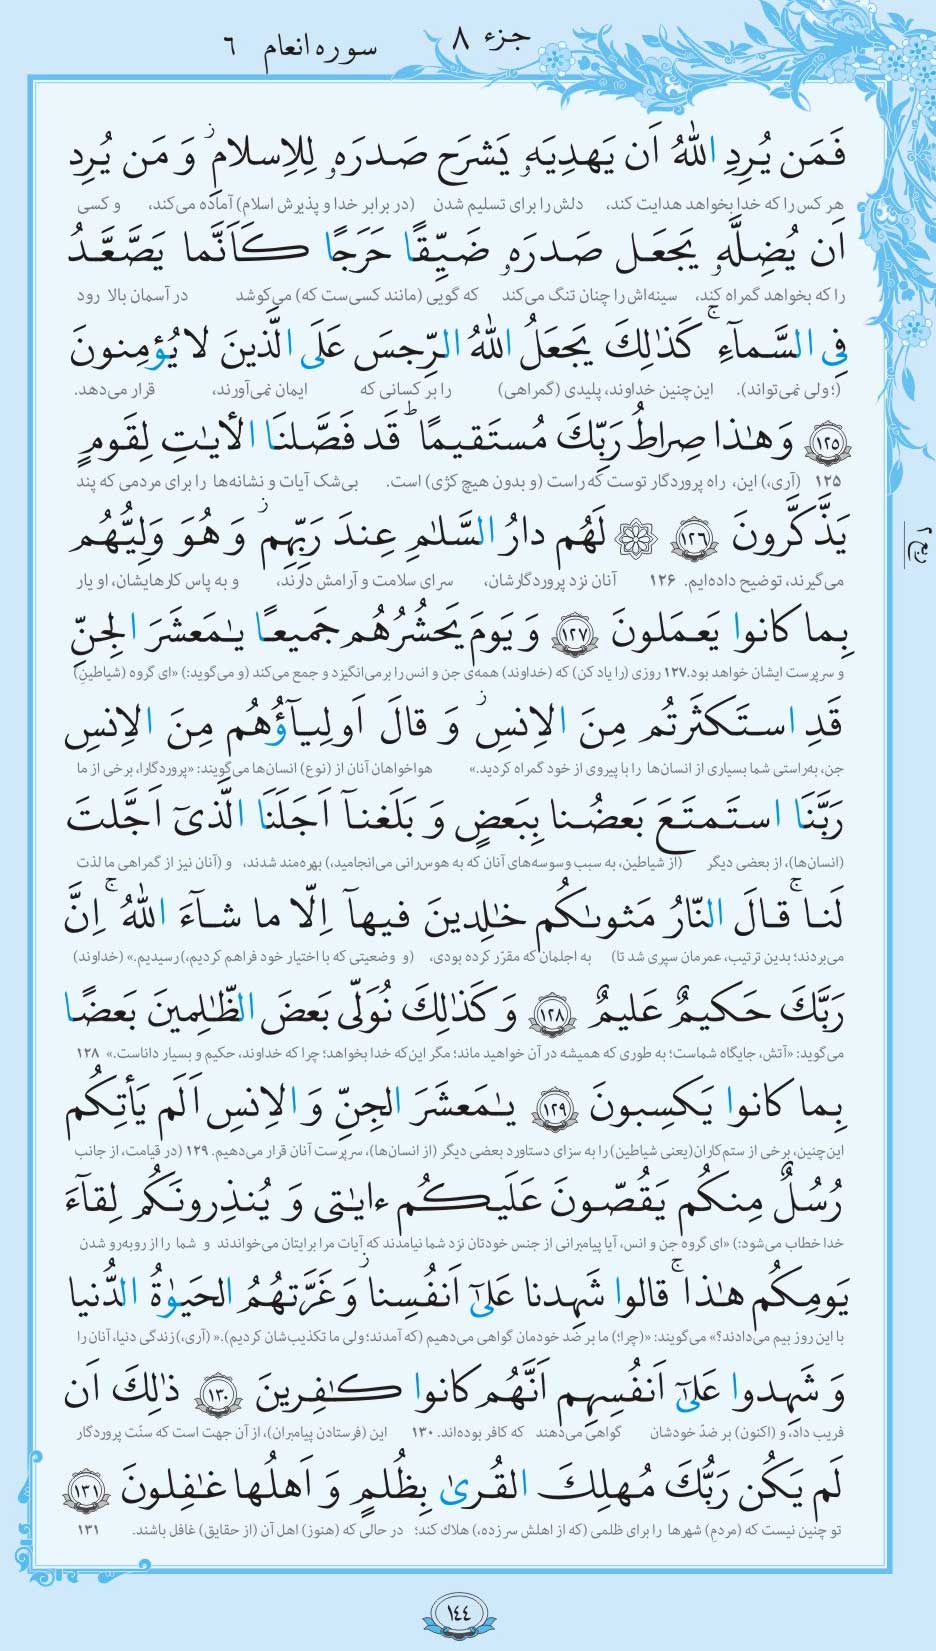 جزء ۸
سوره انعام ۶
فَمَن یُرِدِ اللّٰهُ اَن یَهدِیَهٗ یَشرَح صَدرَهٗ لِلاِسلامِ ۖ وَ مَن یُرِد
هر کس را که خدا بخواهد هدایت کند، دلش را برای تسلیم شدن (در برابر خدا و پذیرش اسلام) آماده می‌کند، و کسی
اَن یُضِلَّهٗ یَجعَل صَدرَهٗ ضَیِّقًا حَرَجًا کَاَنَّما یَصَّعَّدُ
را که بخواهد گمراه کند، سینه‌اش را چنان تنگ می‌کند که گویی (مانند کسی‌ست که) می‌کوشد در آسمان بالا رود
فِی السَّمآءِ ۚ کَذٰلِكَ یَجعَلُ اللّٰهُ الرِّجسَ عَلَی الَّذینَ لا یُؤمِنونَ
(؛ ولی نمی‌تواند). این‌چنین خداوند، پلیدی (گمراهی) را بر کسانی که ایمان نمی‌آورند، قرار می‌دهد.
﴿۱۲۵﴾ وَ هٰذا صِراطُ رَبِّكَ مُستَقیمًا ۗ قَد فَصَّلنَا الأٰیٰتِ لِقَومٍ
۱۲۵ (آری،) این، راه پروردگار توست که راست (و بدون هیچ کژی) است. بی‌شک آیات و نشانه‌ها را برای مردمی که پند
یَذَّکَّرونَ ﴿۱۲۶﴾ ۞ لَهُم دارُ السَّلٰمِ عِندَ رَبِّهِم ۖ وَ هُوَ وَلِیُّهُم
می‌گیرند، توضیح داده‌ایم. ۱۲۶ آنان نزد پروردگارشان، سرای سلامت و آرامش دارند، و به پاس کارهایشان، او یار
ربع ۲
بِما کانوا یَعمَلونَ ﴿۱۲۷﴾ وَ یَومَ یَحشُرُهُم جَمیعًا یٰمَعشَرَ الجِنِّ
و سرپرست ایشان خواهد بود. ۱۲۷ روزی (را یاد کن) که (خداوند) همه‌ی جن و انس را برمی‌انگیزد و جمع می‌کند (و می‌گوید:) «ای گروه (شیاطینِ)
قَدِ استَکثَرتُم مِنَ الاِنسِ ۖ وَ قالَ اَولِیآؤُهُم مِنَ الاِنسِ
جن، به‌راستی شما بسیاری از انسان‌ها را با پیروی از خود گمراه کردید.» هواخواهان آنان از (نوع) انسان‌ها می‌گویند: «پروردگارا، برخی از ما
رَبَّنَا استَمتَعَ بَعضُنا بِبَعضٍ وَ بَلَغنآ اَجَلَنَا الَّذیٓ اَجَّلتَ
(انسان‌ها)، از بعضی دیگر (از شیاطین، به سبب وسوسه‌های آنان که به هوس‌رانی می‌انجامید،) بهره‌مند شدند، و (آنان نیز از گمراهی ما لذت
لَنا ۚ قالَ النّارُ مَثوىٰکُم خٰلِدینَ فیهآ اِلّا ما شآءَ اللّٰهُ ۚ اِنَّ
می‌بردند؛ بدین ترتیب، عمرمان سپری شد تا) به اجلمان که مقرّر کرده بودی، (و وضعیتی که با اختیار خود فراهم کردیم،) رسیدیم.» (خداوند)
رَبَّكَ حَکیمٌ عَلیمٌ ﴿۱۲۸﴾ وَ کَذٰلِكَ نُوَلّی بَعضَ الظّٰلِمینَ بَعضًا
می‌گوید: «آتش، جایگاه شماست؛ به طوری که همیشه در آن خواهید ماند؛ مگر این‌که خدا بخواهد؛ چرا که خداوند، حکیم و بسیار داناست.» ۱۲۸
بِما کانوا یَکسِبونَ ﴿۱۲۹﴾ یٰمَعشَرَ الجِنِّ وَ الاِنسِ اَلَم یَأتِکُم
این‌چنین، برخی از ستم‌کاران (یعنی شیاطین) را به سزای دستاورد بعضی دیگر (از انسان‌ها)، سرپرست آنان قرار می‌دهیم. ۱۲۹ (در قیامت، از جانب
رُسُلٌ مِنکُم یَقُصّونَ عَلَیکُم ءایٰتی وَ یُنذِرونَکُم لِقآءَ
خدا خطاب می‌شود:) «ای گروه جن و انس، آیا پیامبرانی از جنس خودتان نزد شما نیامدند که آیات مرا برایتان می‌خواندند و شما را از روبه‌رو شدن
یَومِکُم هٰذا ۚ قالوا شَهِدنا عَلیٰٓ اَنفُسِنا ۖ وَ غَرَّتهُمُ الحَیوٰةُ الدُّنیا
با این روز بیم می‌دادند؟» می‌گویند: «(چرا؛) ما بر ضد خودمان گواهی می‌دهیم (که آمدند؛ ولی ما تکذیب‌شان کردیم).» (آری،) زندگی دنیا، آنان را
وَ شَهِدوا عَلیٰٓ اَنفُسِهِم اَنَّهُم کانوا کٰفِرینَ ﴿۱۳۰﴾ ذٰلِكَ اَن
فریب داد، و (اکنون) بر ضدّ خودشان گواهی می‌دهند که کافر بوده‌اند. ۱۳۰ این (فرستادن پیامبران)، از آن جهت است که سنّت پروردگار
لَم یَکُن رَبُّكَ مُهلِكَ القُریٰ بِظُلمٍ وَ اَهلُها غٰفِلونَ ﴿۱۳۱﴾
تو چنین نیست که (مردمِ) شهرها را برای ظلمی (که از اهلش سر زده،) هلاک کند؛ در حالی که (هنوز) اهل آن (از حقایق) غافل باشند. ۱۳۱
۱۴۴